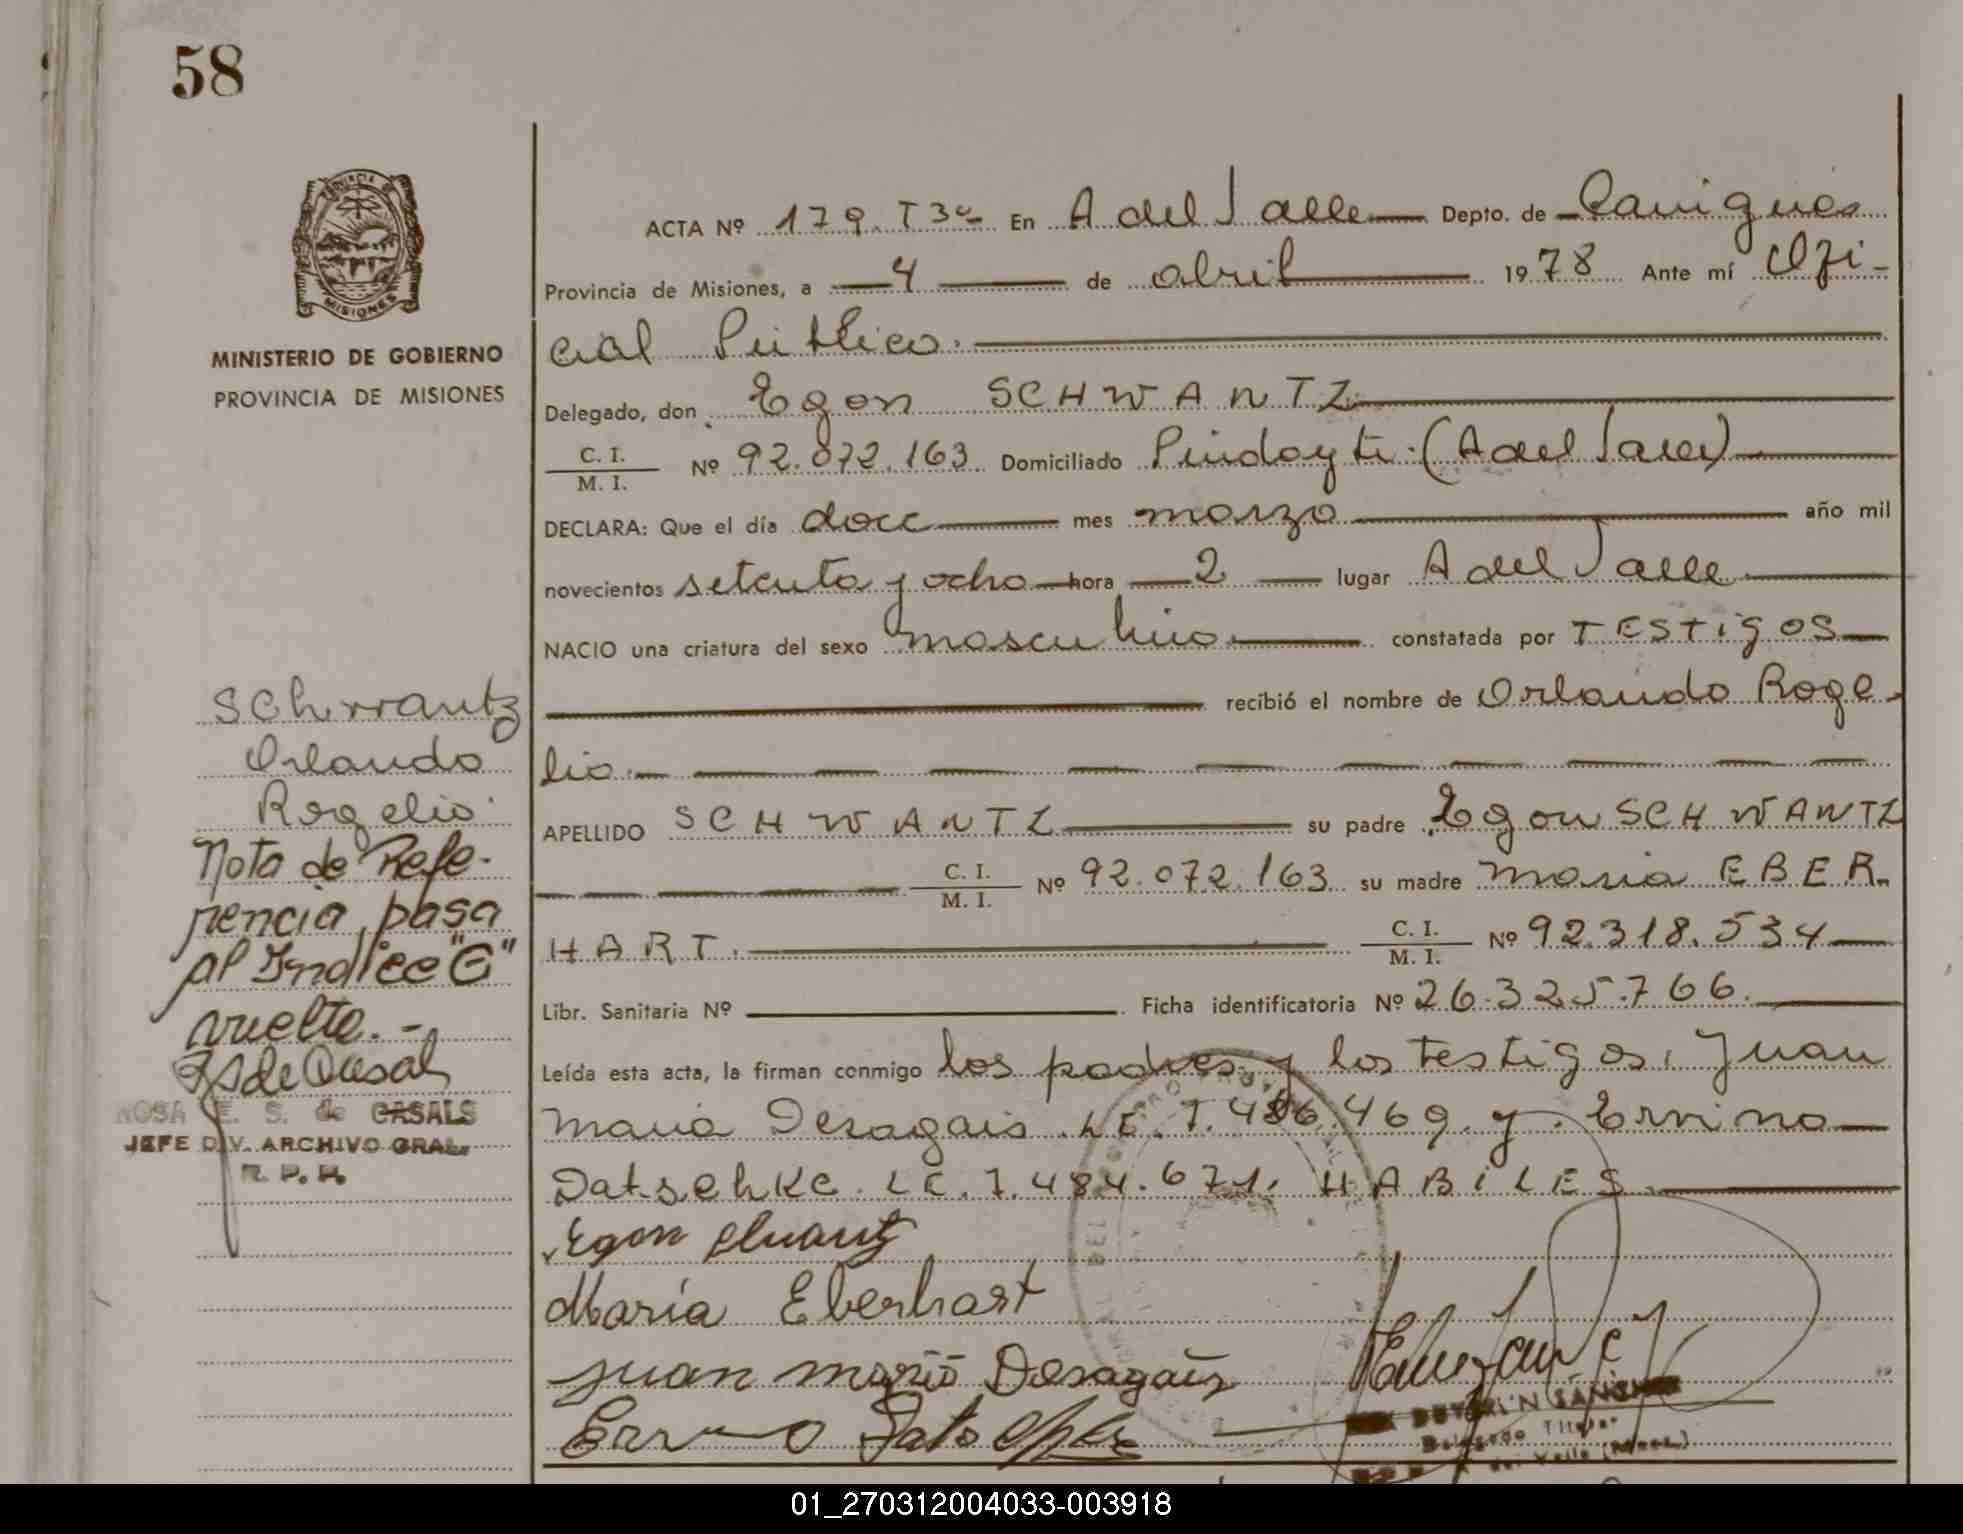 58
PROVINCIA DE
MISIONES
MINISTERIO DE GOBIERNO
PROVINCIA DE MISIONES
ACTA Nº 179. T 3º En A del Valle Depto. de Cainguás
Provincia de Misiones, a 4 de abril 1978 Ante mí Ofi-
cial Público.
Delegado, don Egon SCHWANTZ
C. I.
M. I. Nº 92.072.163 Domiciliado Pindayti (A del Valle)
DECLARA: Que el día doce mes marzo año mil
novecientos setenta y ocho hora 2 lugar A del Valle
NACIO una criatura del sexo masculino constatada por TESTigOS
recibió el nombre de Orlando Roge-
lio.
APELLIDO SCHWANTZ su padre Egon SCHWANTZ
C. I.
M. I. Nº 92.072.163 su madre Maria EBER-
HART. C. I.
M. I. Nº 92.318.534
Libr. Sanitaria Nº Ficha identificatoria Nº 26.325.766.
Leída esta acta, la firman conmigo los padres y los testigos, Juan
Maria Desagais. LE. 7.486.469. y Ervino
Datschke. LE. 7.484.671. HABiLES.
Egon
Maria Eberhart
Juan Desagais
SCHwantz
Orlando
Rogelio
Nota de Refe-
rencia pasa
al Indice "G"
vuelta.-
ROSA E. S. de CASALS
JEFE DIV. ARCHIVO GRAL.
R. P. P.
Titular
01_270312004033-003918